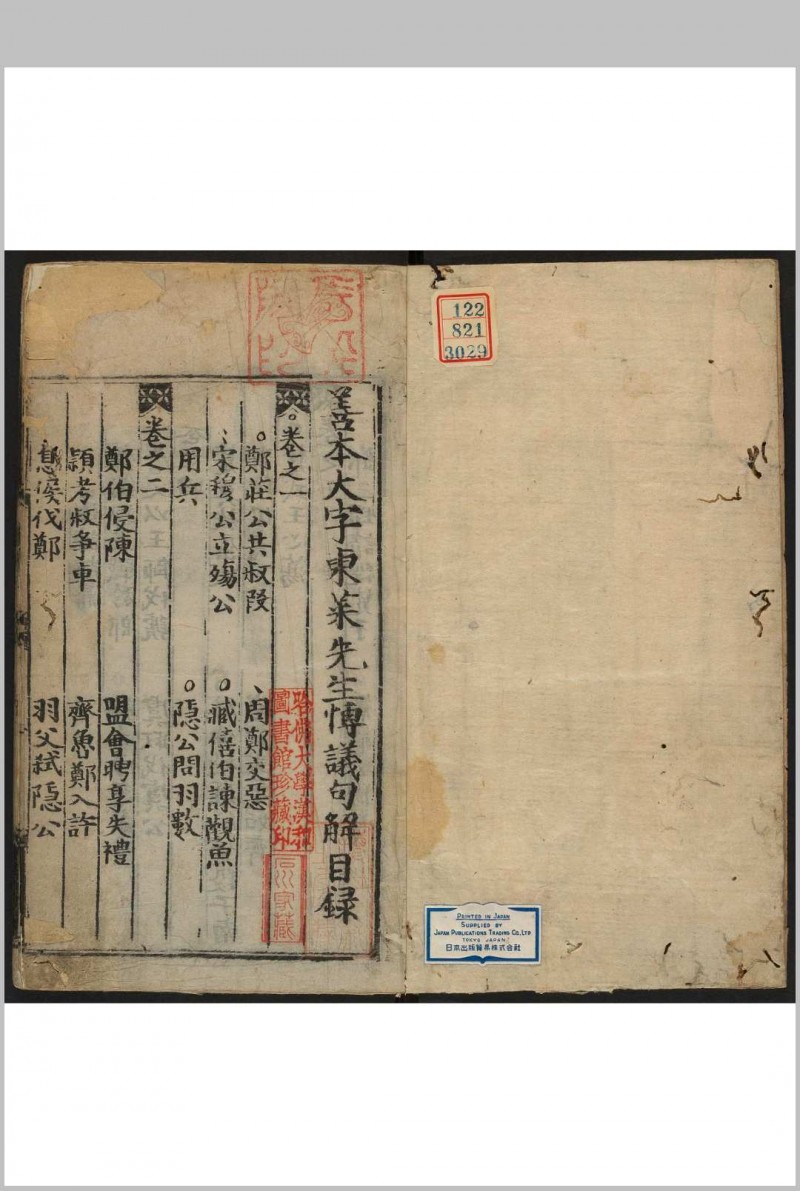 122
821
3029
PRINTED IN JAPAN
SUPPLIED BY
JAPAN PUBLICATIONS TRADING CO., LTD
TOKYO JAPAN
日本出版貿易株式会社
善本大字東萊先生博議句解目録
卷之一
鄭莊公共叔段
周鄭交惡
宋穆公立殤公
臧僖伯諫觀魚
用兵
隱公問羽數
卷之二
鄭伯侵陳
盟會聘享失禮
頴考叔爭車
齊魯鄭入許
息侯伐鄭
羽父弑隱公
哈佛大學漢和
圖書館珍藏印
家藏